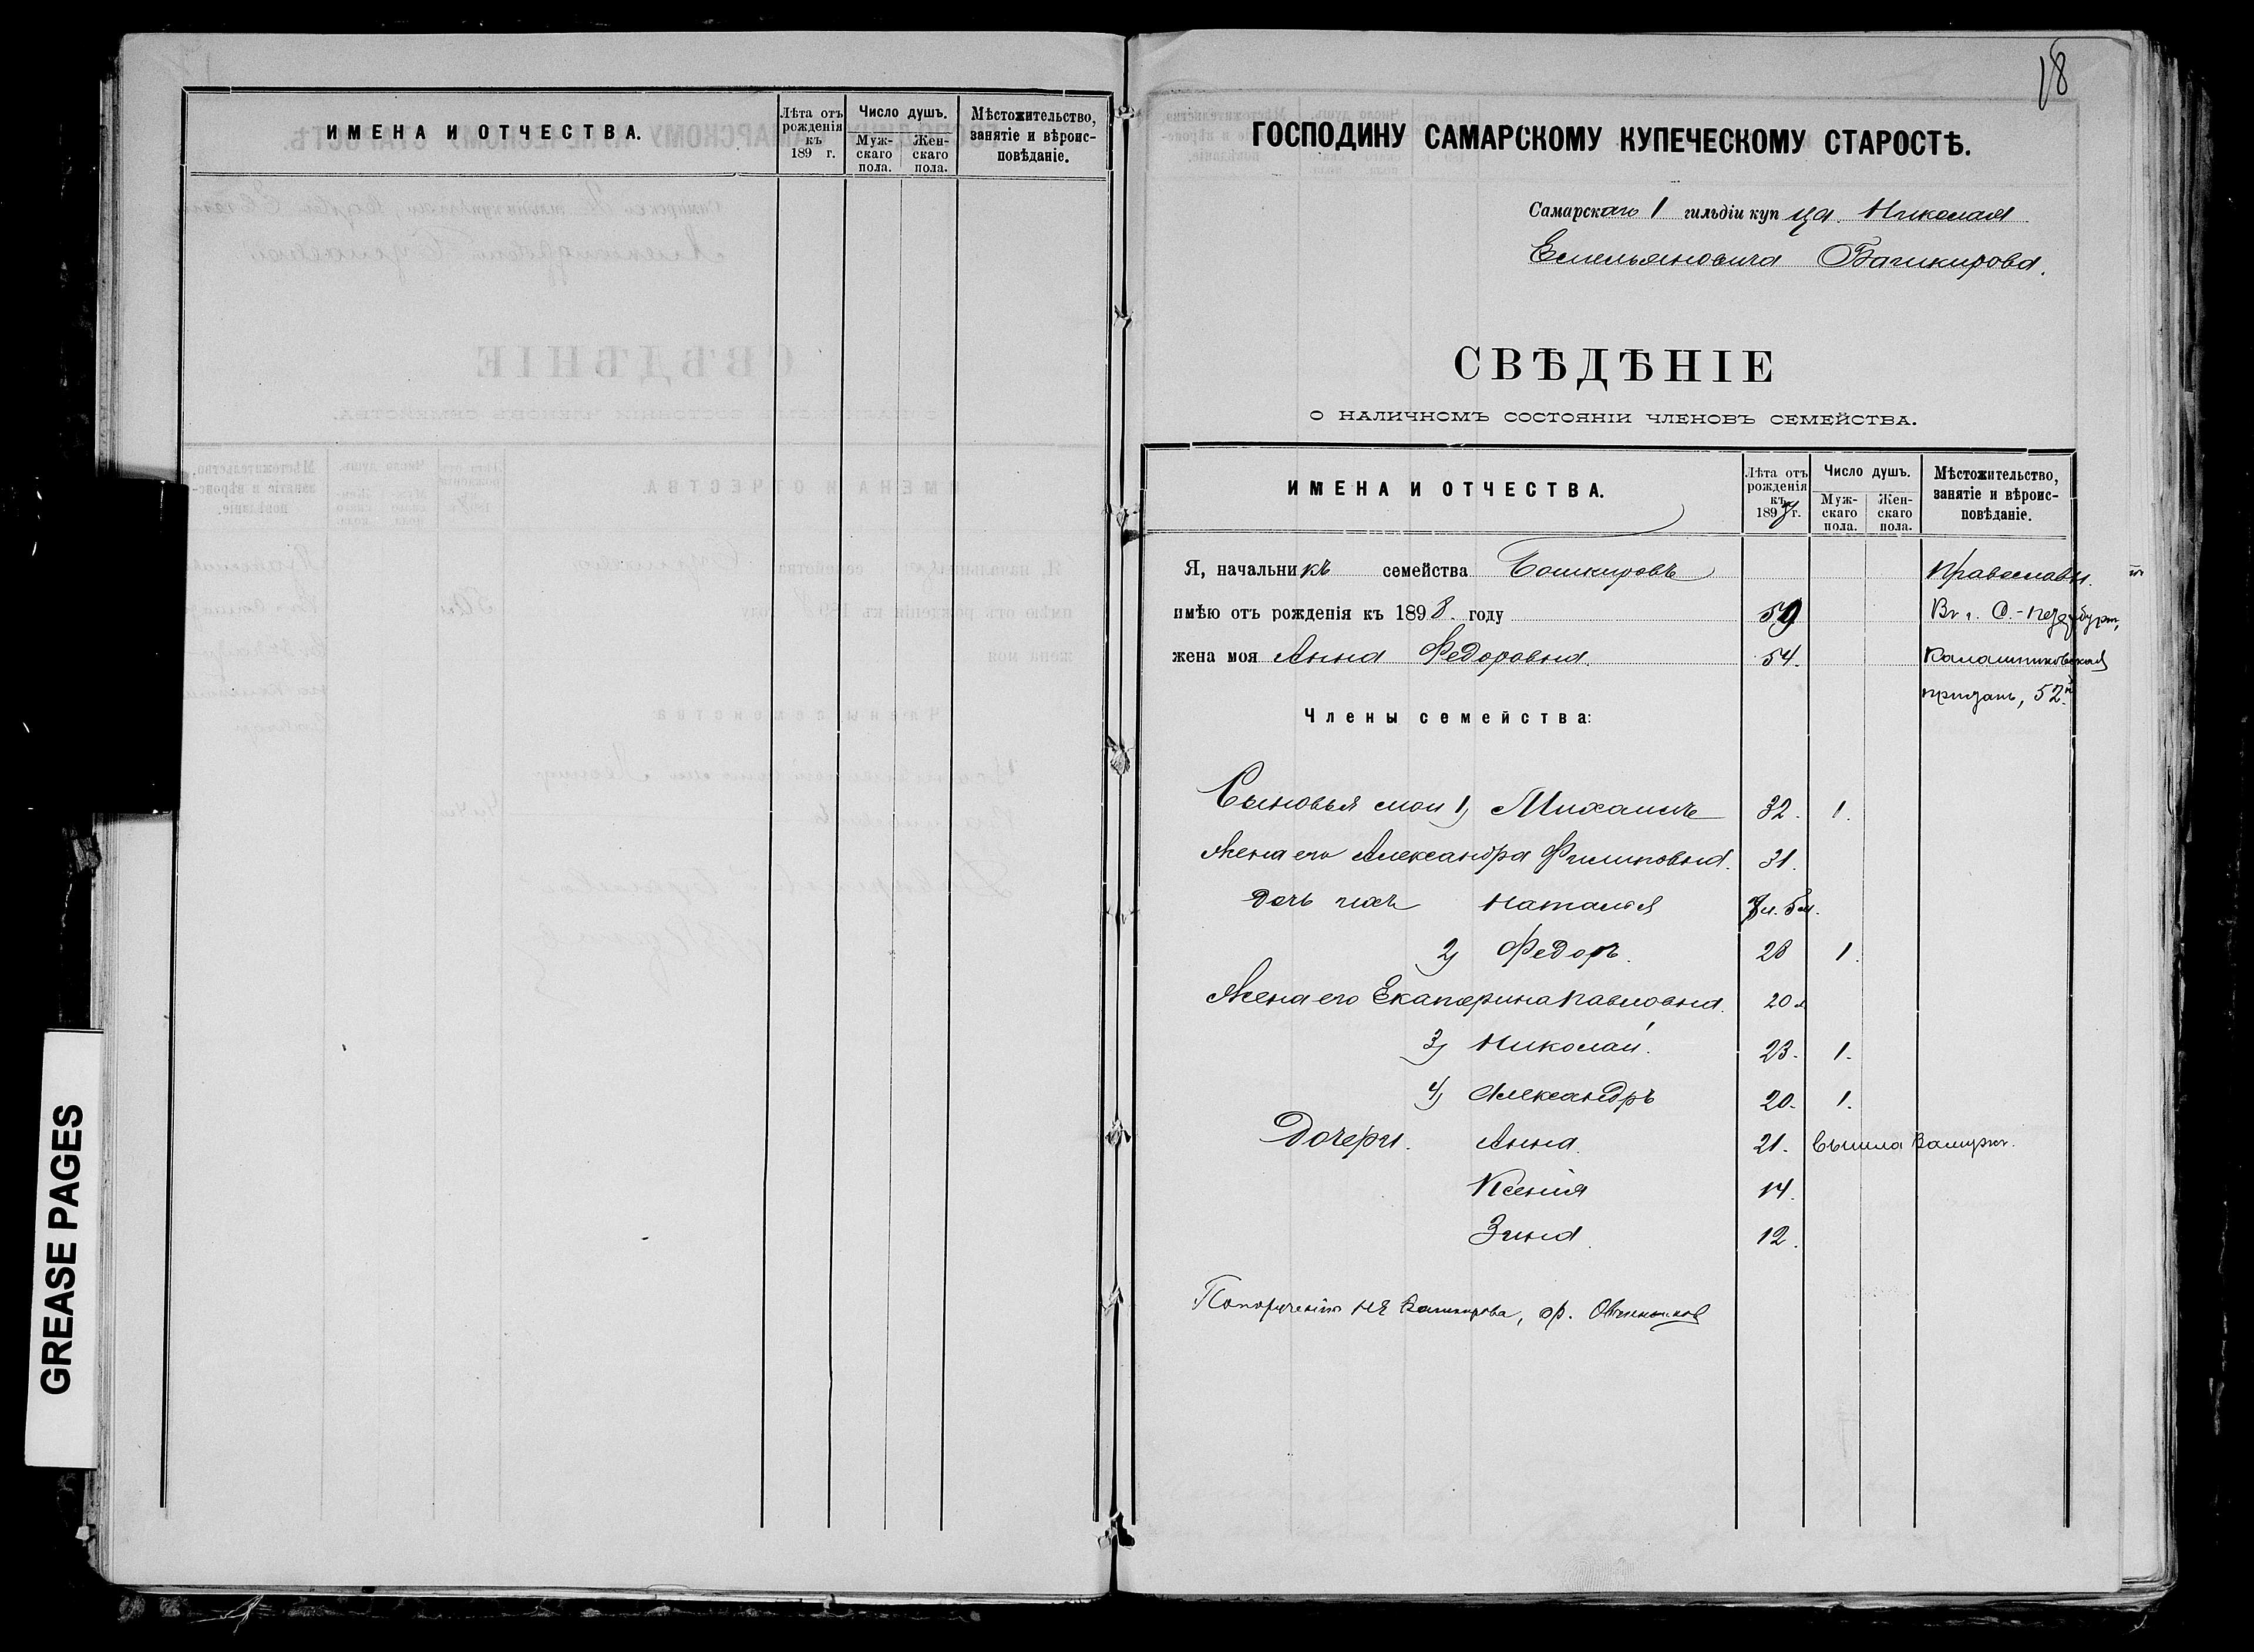 ИМЕНА И ОТЧЕСТВА.
Лѣта отъ рожденія къ 189 г.
Число душъ.
Муж-скаго пола.
Жен-скаго пола.
Мѣстожительство, занятіе и вѣроис-повѣданіе.
GREASE PAGES
18
ГОСПОДИНУ САМАРСКОМУ КУПЕЧЕСКОМУ СТАРОСТѢ.
Самарскаго 1 гильдіи купца Николая
Емельяновича Башкирова.
СВѢДѢНІЕ
О НАЛИЧНОМЪ СОСТОЯНІИ ЧЛЕНОВЪ СЕМЕЙСТВА.
ИМЕНА И ОТЧЕСТВА.
Лѣта отъ рожденія къ 1898 г.
Число душъ.
Муж-скаго пола.
Жен-скаго пола.
Мѣстожительство, занятіе и вѣроис-повѣданіе.
Я, начальникъ семейства Башкировъ Православн.
имѣю отъ рожденія къ 1898. году 59 Въ г. С.-Петербургѣ,
жена моя Анна Федоровна. 54. Калашниковская
пристань, 52.
Члены семейства:
Сыновья мои 1) Михаилъ 32. 1.
Жена его Александра Филиповна. 31.
Дочь ихъ Наталія 5 м.
2) Федоръ. 28 1.
Жена его Екатерина Павловна. 20 л
3) Николай. 23. 1.
4) Александръ 20. 1.
Дочери. Анна. 21. вышла замужъ.
Ксенія 14.
Зина. 12.
По порученію Н Е Башкирова, Овчинников